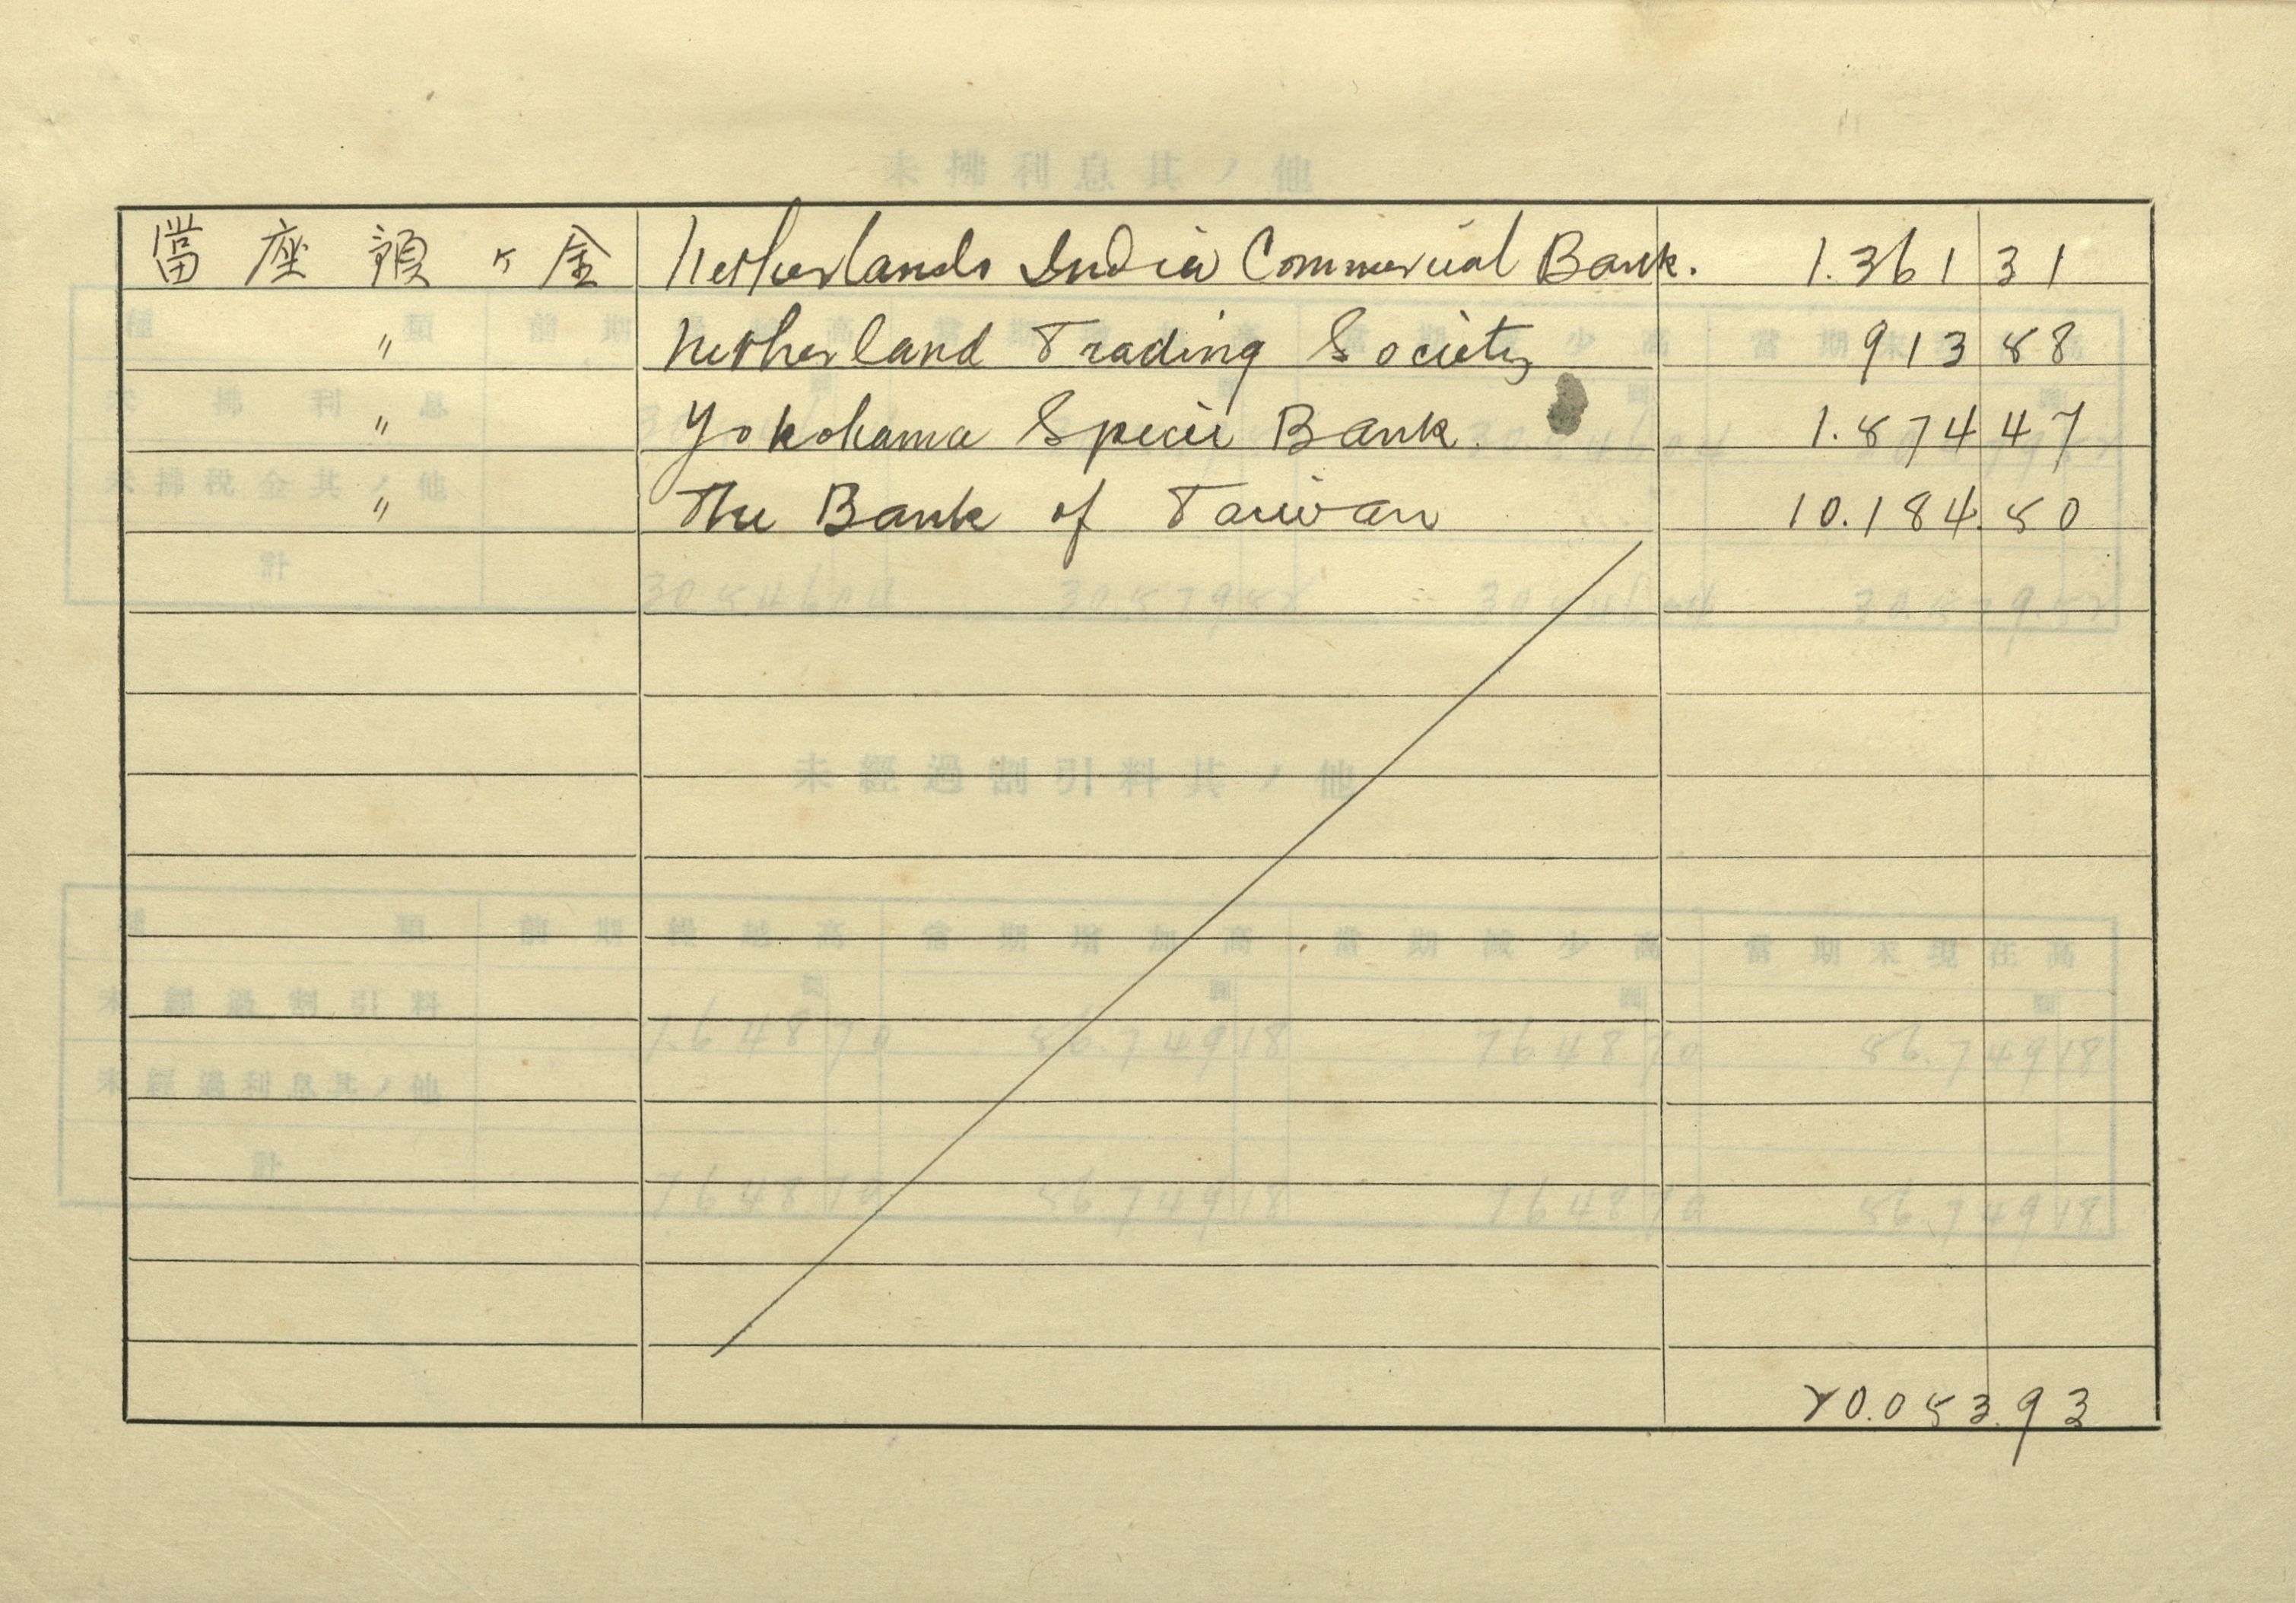 當座預ヶ金 Netherlands India Commercial Bank. 1.361 31
〃 Netherland Trading Society 913 58
〃 Yokohama Specie Bank. 1.574 47
〃 The Bank of Taiwan 10.184.50
20.053.93